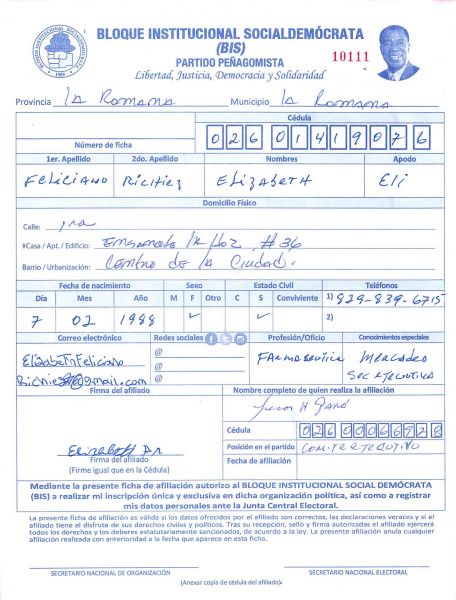 BLOQUE INSTITUCIONAL SOCIALDEMÓCRATA
(BIS)
PARTIDO PEÑAGOMISTA
10111
Libertad, Justicia, Democracia y Solidaridad
Provincia LA ROMANA Municipio LA ROMANA
Cédula
Número de ficha 026 0141907 6
1er. Apellido 2do. Apellido Nombres Apodo
FELICIANO ELIZABETH Eli
Domicilio Físico
Calle: 1ra
#Casa / Apt. / Edificio: #36
Barrio / Urbanización: Centro DE LA Ciudad.
Fecha de nacimiento Sexo Estado Civil Teléfonos
Día Mes Año M F Otro C S Conviviente 1) 829-839-6715
7 02 1988 ✓ ✓ 2)
Correo electrónico Redes sociales Profesión/Oficio Conocimientos especiales
ElizabethFeliciano @ FARmaceutica Mercadeo
@gmail.com @ Secretaria
@
Firma del afiliado Nombre completo de quien realiza la afiliación
Cédula 026 0006672 8
Elizabeth Posición en el partido
Firma del afiliado Fecha de afiliación
(Firme igual que en la Cédula)
Mediante la presente ficha de afiliación autorizo al BLOQUE INSTITUCIONAL SOCIAL DEMÓCRATA
(BIS) a realizar mi inscripción única y exclusiva en dicha organización política, así como a registrar
mis datos personales ante la Junta Central Electoral.
La presente ficha de afiliación es válida si los datos ofrecidos por el afiliado son correctos, las declaraciones veraces y si el
afiliado tiene el disfrute de sus derechos civiles y políticos. Tras su recepción, sello y firma autorizados el afiliado ejercerá
todos los derechos y los deberes estatutariamente sancionados, de acuerdo a la ley. La presente afiliación anula cualquier
afiliación realizada con anterioridad a la fecha que aparece en esta ficha.
SECRETARIO NACIONAL DE ORGANIZACIÓN SECRETARIO NACIONAL ELECTORAL
(Anexar copia de cédula del afiliado)